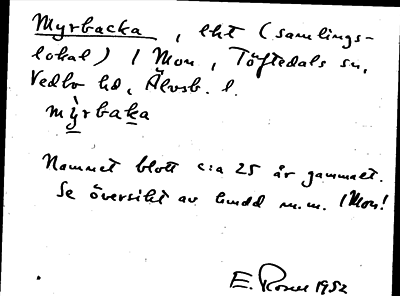 Myrbacka, lht (samlings-
lokal) / Mon, Töftedals sn,
Vedbo hd, Älvsb. l.
mỳrbaka
Namnet blott c:a 25 år gammalt.
Se översikt av m.m. /Mon!
E. Rosen 1952